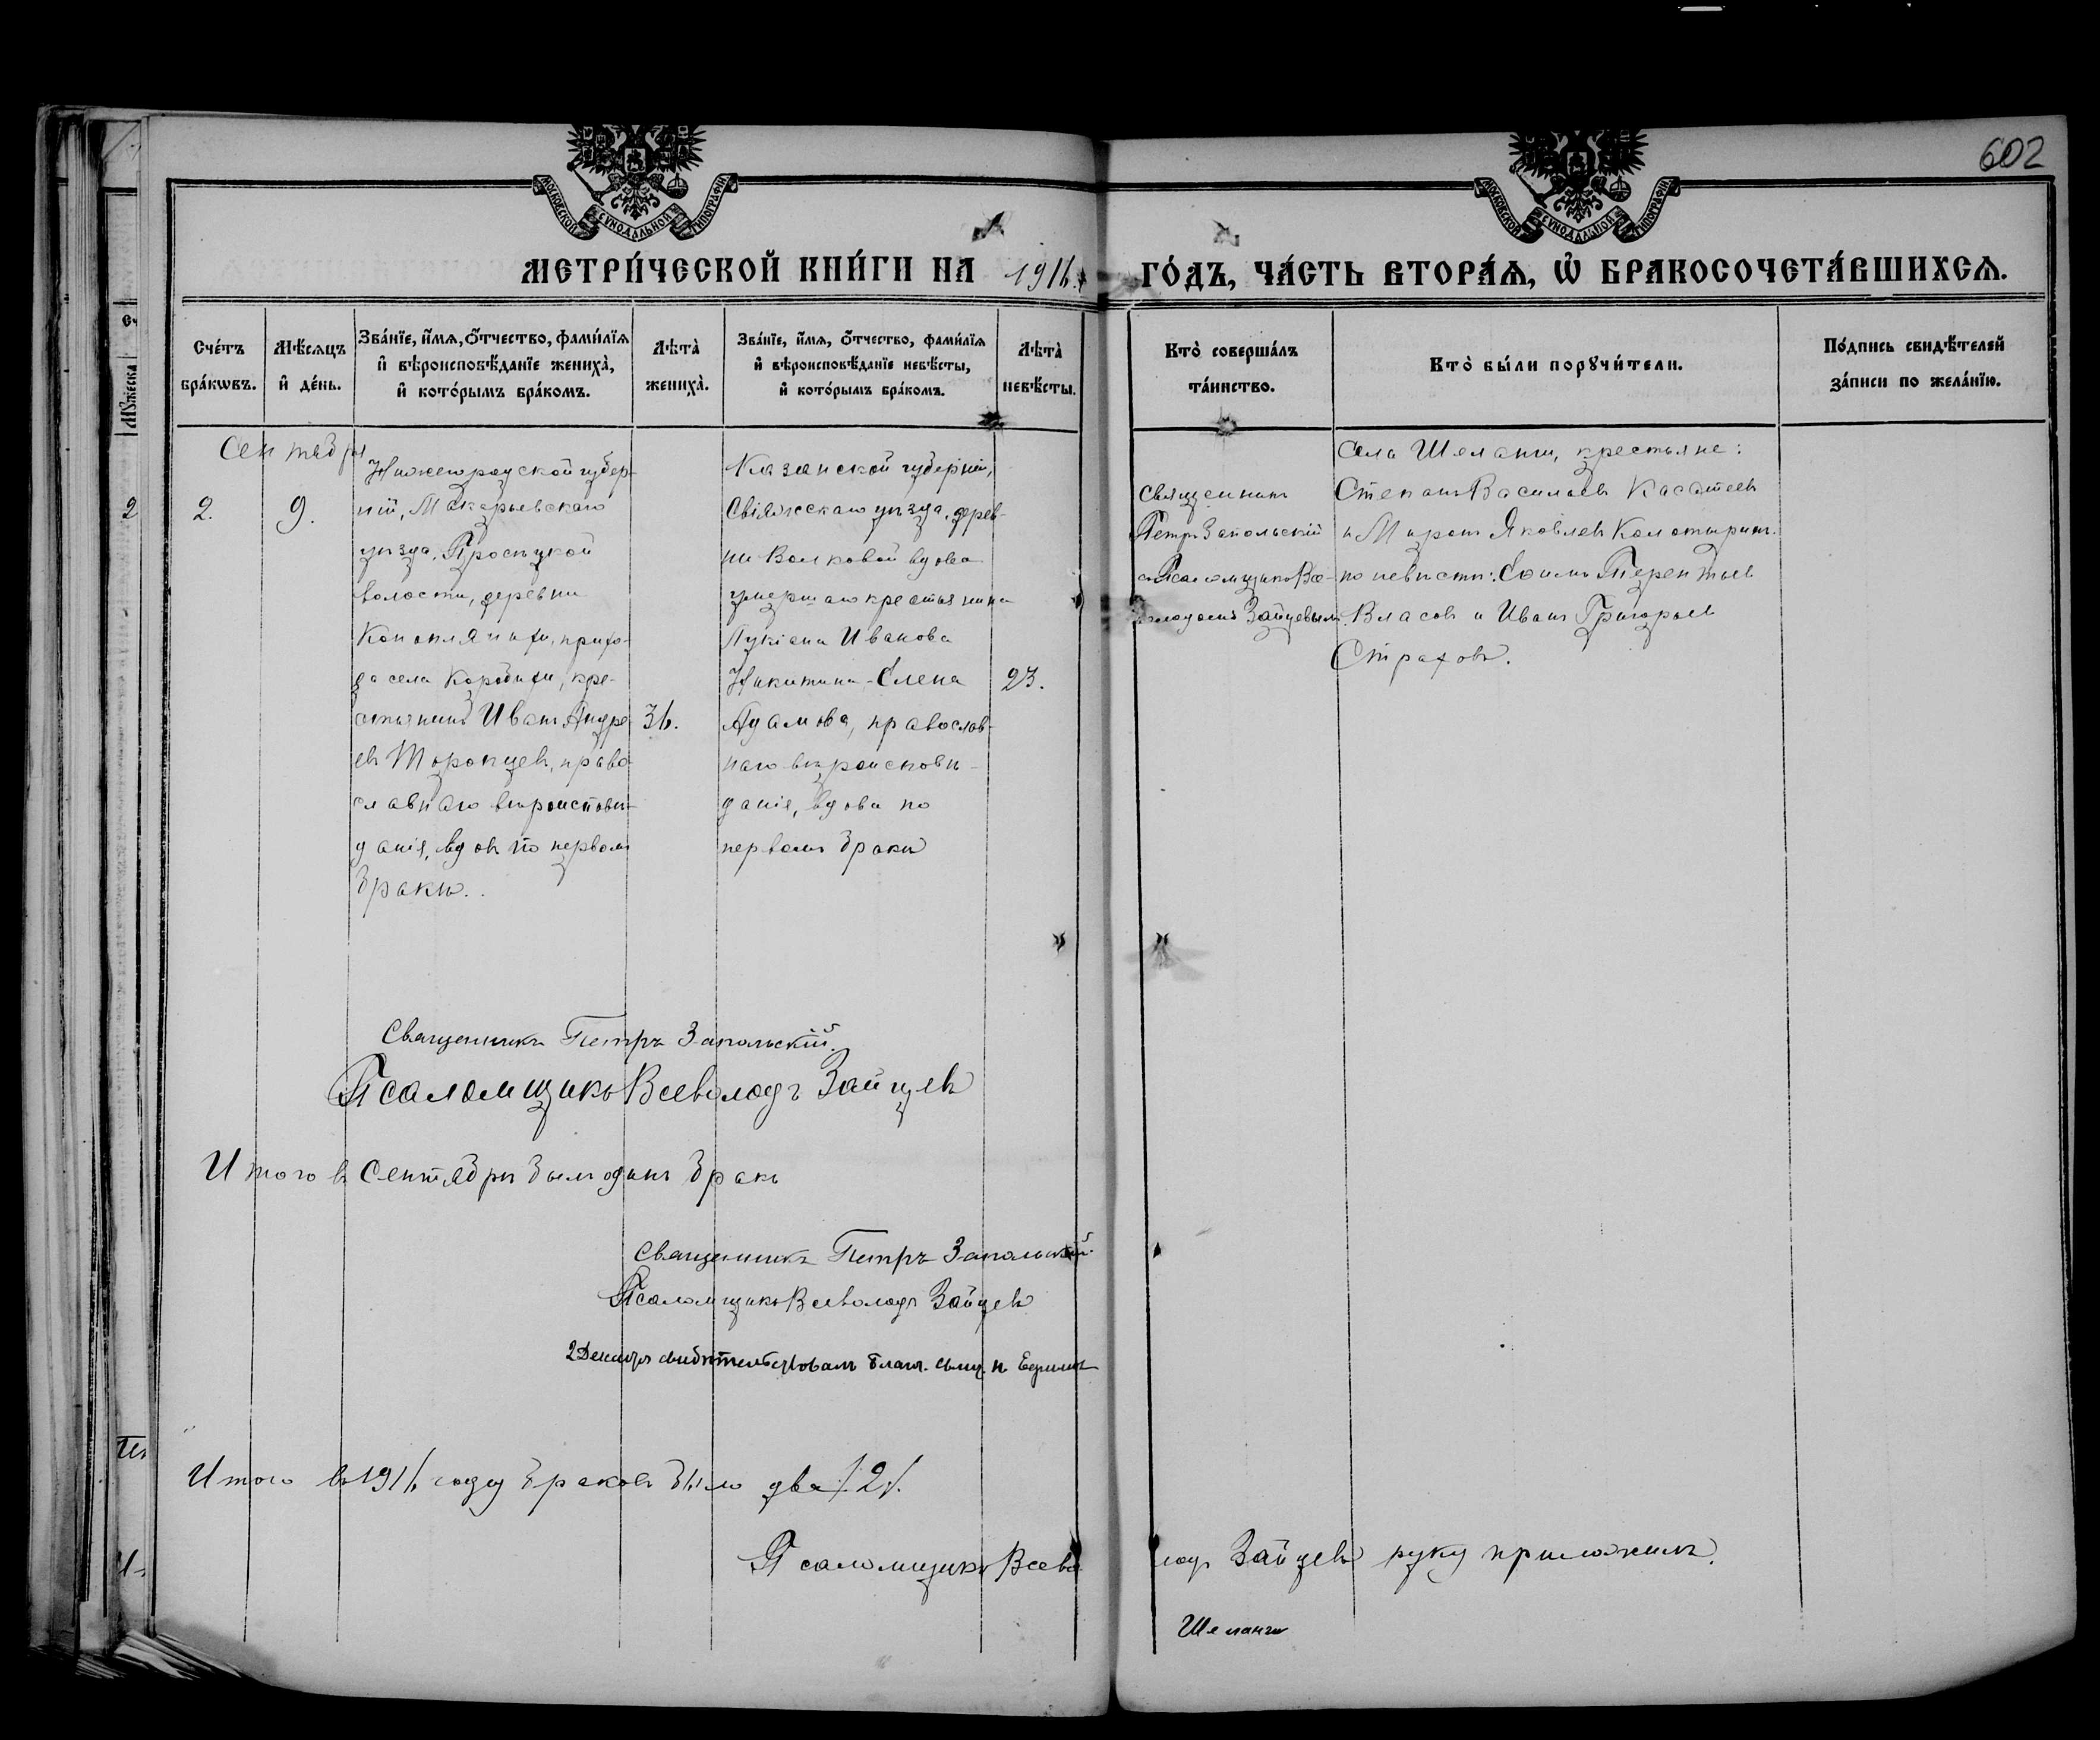 602
МОСКОВСКОЙ СУНОДАЛЬНОЙ ТИПОГРАФІИ
МОСКОВСКОЙ СУНОДАЛЬНОЙ ТИПОГРАФІИ
МЕТРИ́ЧЕСКОЙ КНИ́ГИ НА 1916 ГО́ДЪ, ЧА́СТЬ ВТОРА́Я, Ѡ҆ БРАКОСОЧЕТА́ВШИХСЯ.
Сче́тъ
бра́кѡвъ.
Мѣ́сяцъ
и҆ де́нь.
Зва́нїе, и҆́мя, ѻ҆́тчество, фами́лїя
и҆ вѣроисповѣ́данїе жениха̀,
и҆ кото́рымъ бра́комъ.
Лѣта̀
жениха̀.
Зва́нїе, и҆́мя, ѻ҆́тчество, фами́лїя
и҆ вѣроисповѣ́данїе невѣ́сты,
и҆ кото́рымъ бра́комъ.
Лѣта̀
невѣ́сты.
Кто̀ соверша́лъ
та́инство.
Кто̀ бы́ли порꙋчи́тели.
По́дпись свидѣ́телей
за́писи по жела́нїю.
Сентября
2.
9.
Нижегородской губер-
ніи, Макарьевскаго
уѣзда,
волости, деревни
Коноплянихи, прихо-
да села Кородихи, кре-
стьянинъ Иванъ Андре-
евъ Торопцевъ, право
славнаго вѣроисповѣ-
данія, вдовъ по первомъ
бракѣ.
36.
Казанской губерніи,
Свіяжскаго уѣзда, дерев-
ни Волковой вдова
умершаго крестьянина
Лукіана Иванова
Никитина - Елена
Адамова, православ-
наго вѣроисповѣ-
данія, вдова по
первомъ бракѣ
23.
Священникъ
Петръ Запольскій
съ Псаломщикомъ Все-
володомъ Зайцевымъ.
Села Шеланги, крестьяне:
Степанъ Васильевъ Касаткевъ
и Миронъ Яковлевъ Колотыринъ.
по невѣстѣ: Терентьевъ
Власовъ и Иванъ Григорьевъ
Страховъ.
Священникъ Петръ Запольскій.
Псаломщикъ Всеволодъ Зайцевъ
Итого въ Сентябрѣ былъ одинъ бракъ
Священникъ Петръ Запольскій.
Псаломщикъ Всеволодъ Зайцевъ
2 Декабря свидѣтельствовалъ благ. свящ.
Итого въ 1916 году браковъ было два /:2:/.
Псаломщикъ Всеволодъ Зайцевъ руку приложилъ.
Шеланги